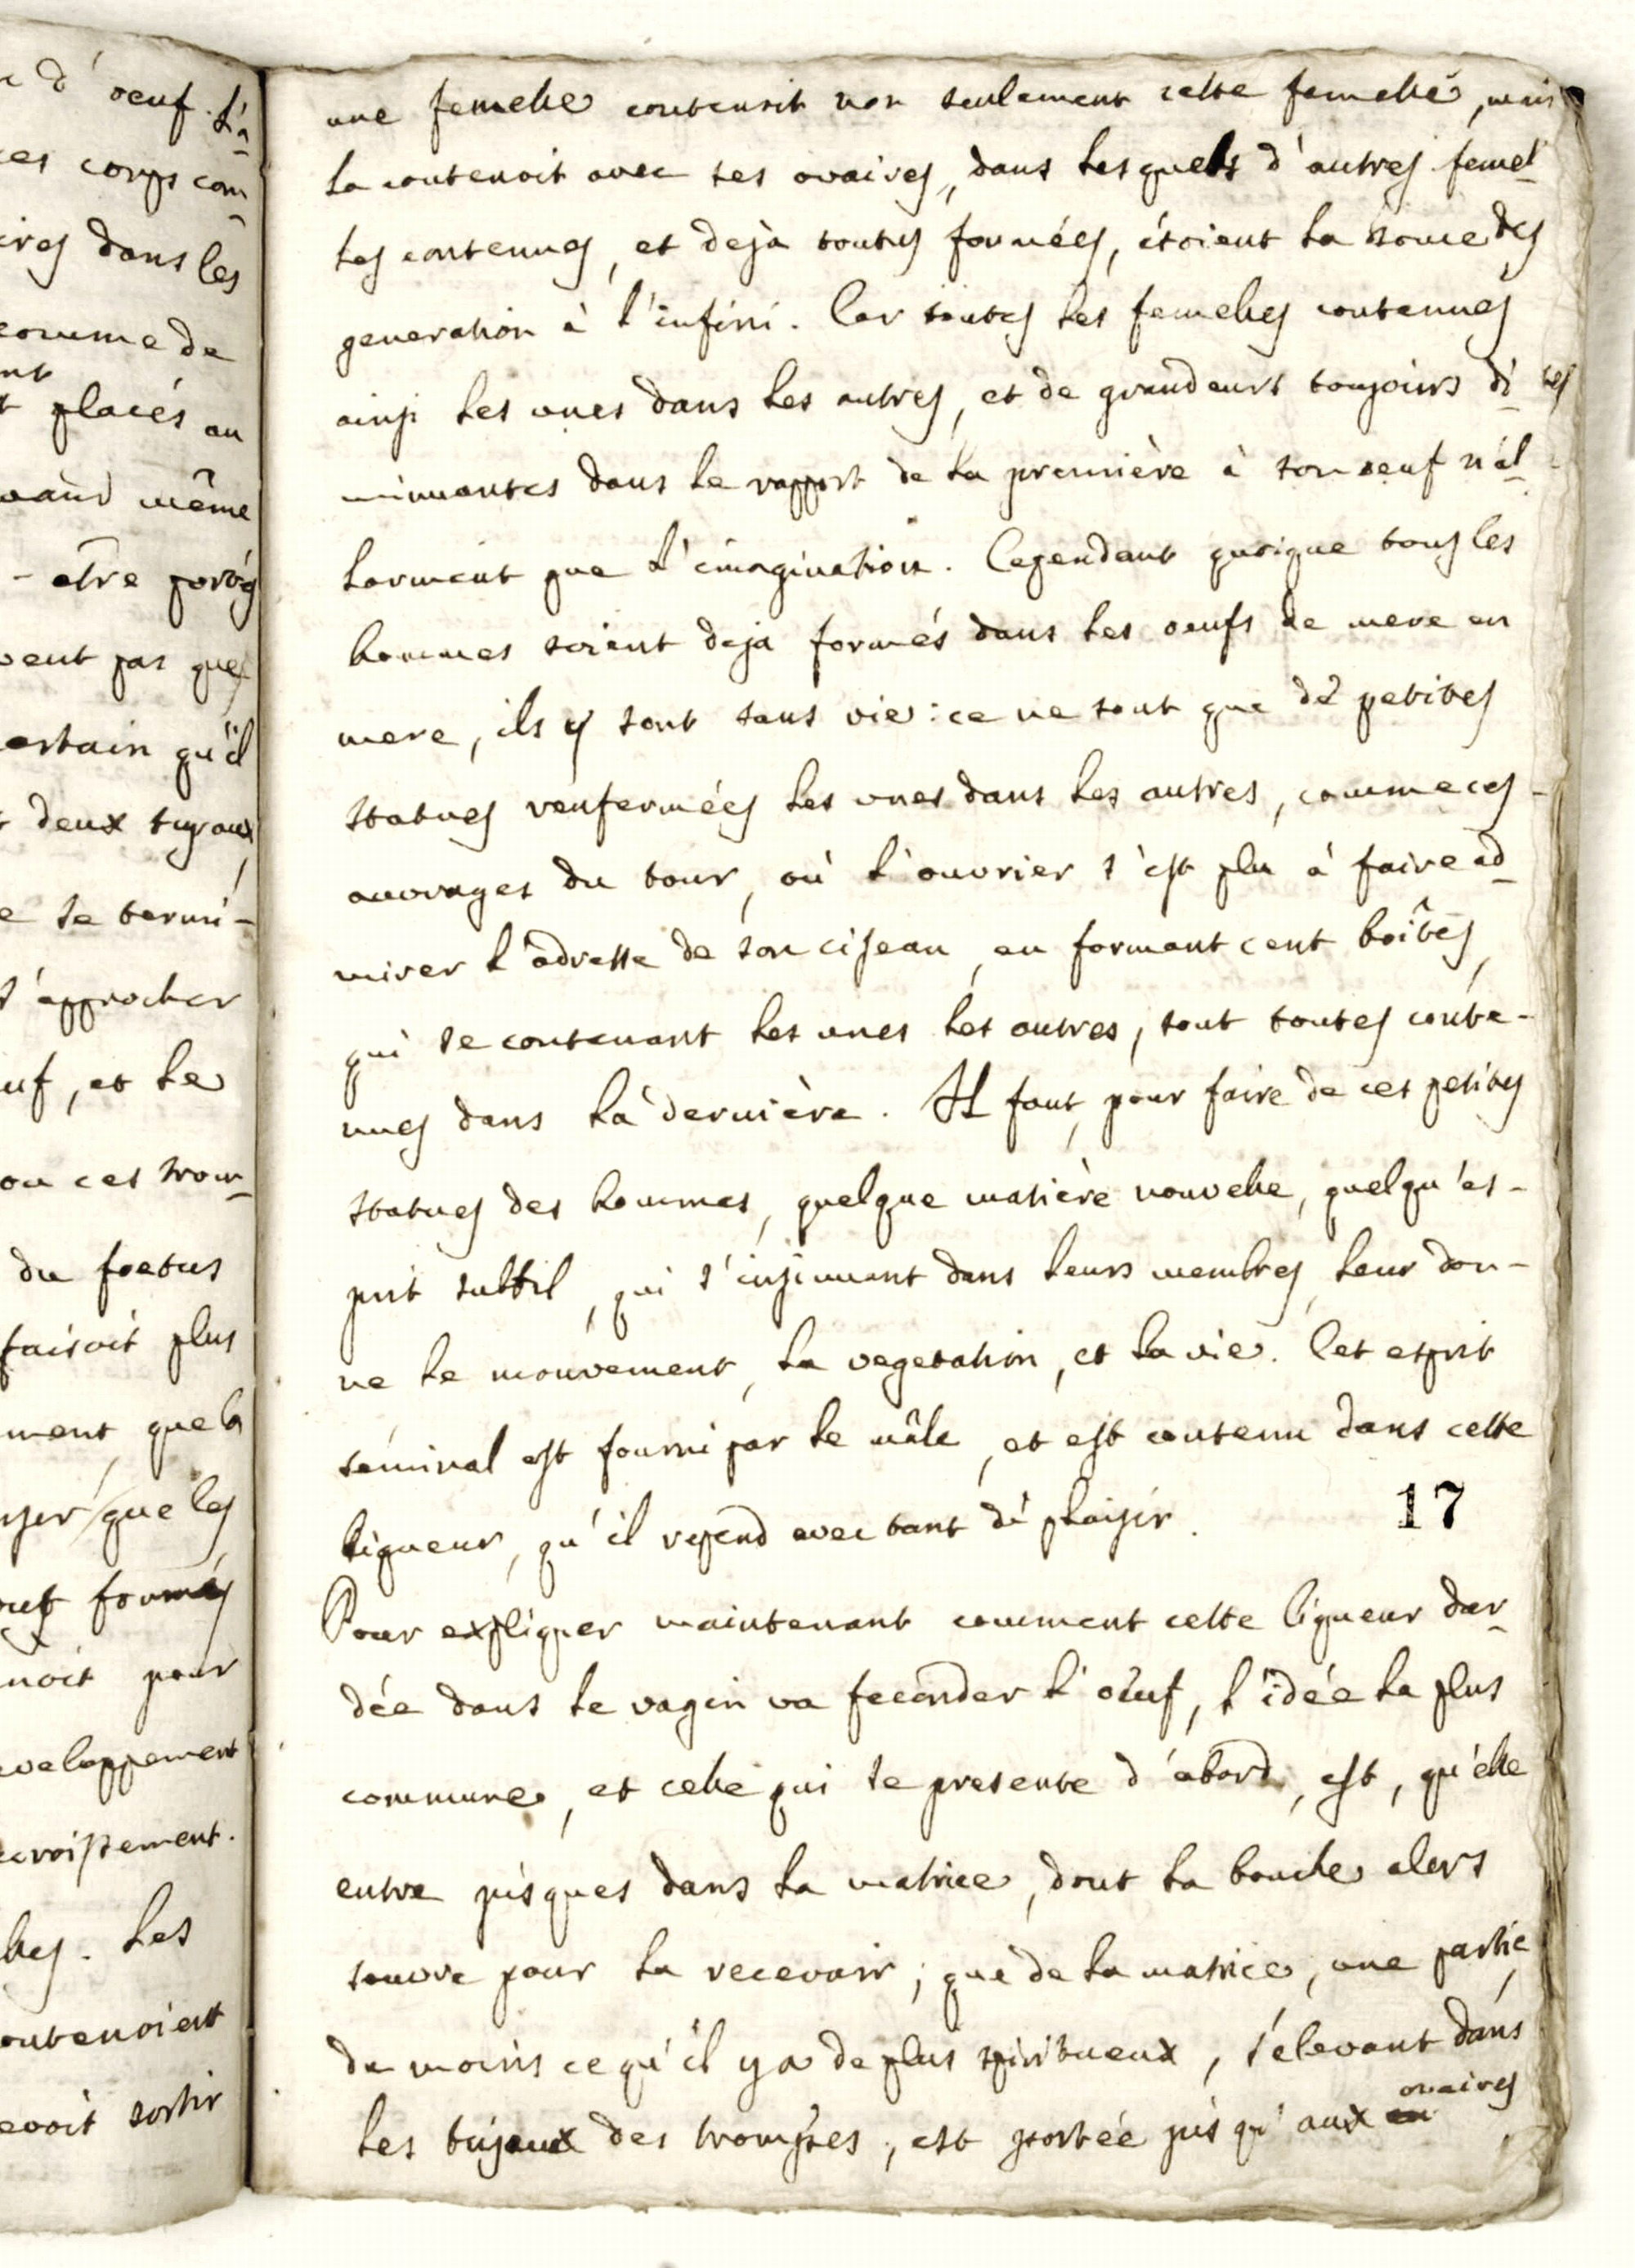 r d'oeuf. L'a
ces corps com
ires dans les
comme de
nt
t placés au
uand même
- etre portés
vent pas que
certain qu'il
t deux tuyaux
e se termi-
s'approcher
uf, et le
ou ces trom-
du foetus
faisoit plus
ment, que la
nser que les
formés
noit pour
eveloppement
ccroissement.
lles. Les
ontenoient
evoit sortir
une femelle contenoit non seulement cette femelle, mais
la contenoit avec ses ovaires, dans lesquels d'autres femel-
les contenues, et dejà toutes formées, étoient la source des
generation à l'infini. Car toutes les femelles contenues
ainsi les unes dans les autres, et de grandeurs toujours di-
minuantes dans le rapport de la première à son oeuf n'al-
larment que l'imagination. Cependant quoique tous les
hommes soient deja formés dans les oeufs de mere en
mere, ils y sont sans vie: ce ne sont que de petites
statues renfermées les unes dans les autres, comme ces
ouvrages du tour, où l'ouvrier s'est plu à faire ad-
mirer l'adresse de son ciseau, en formant cent boîtes,
qui se contenant les unes les autres, sont toutes conte-
nues dans la dernière. Il faut, pour faire de ces petites
statues des hommes, quelque matière nouvelle, quelqu'es-
prit subtil, qui s'insinuant dans leurs membres, leur don-
ne le mouvement, la vegetation, et la vie. Cet esprit
séminal est fourni par le mâle, et est contenu dans cette
liqueur, qu'il repend avec tant de plaisir.
17
Pour expliquer maintenant comment cette liqueur dar-
dée dans le vagin va feconder l'oeuf, l'idée la plus
commune, et celle qui se presente d'abord, est, qu'elle
entre jusques dans la matrice, dont la bouche alors
souvre pour la recevoir; que de la matrice, une partie,
du moins ce qu'il y a de plus spiritueux, s'elevant dans
les tujaux des trompes, est portée jusqu'aux ovaires